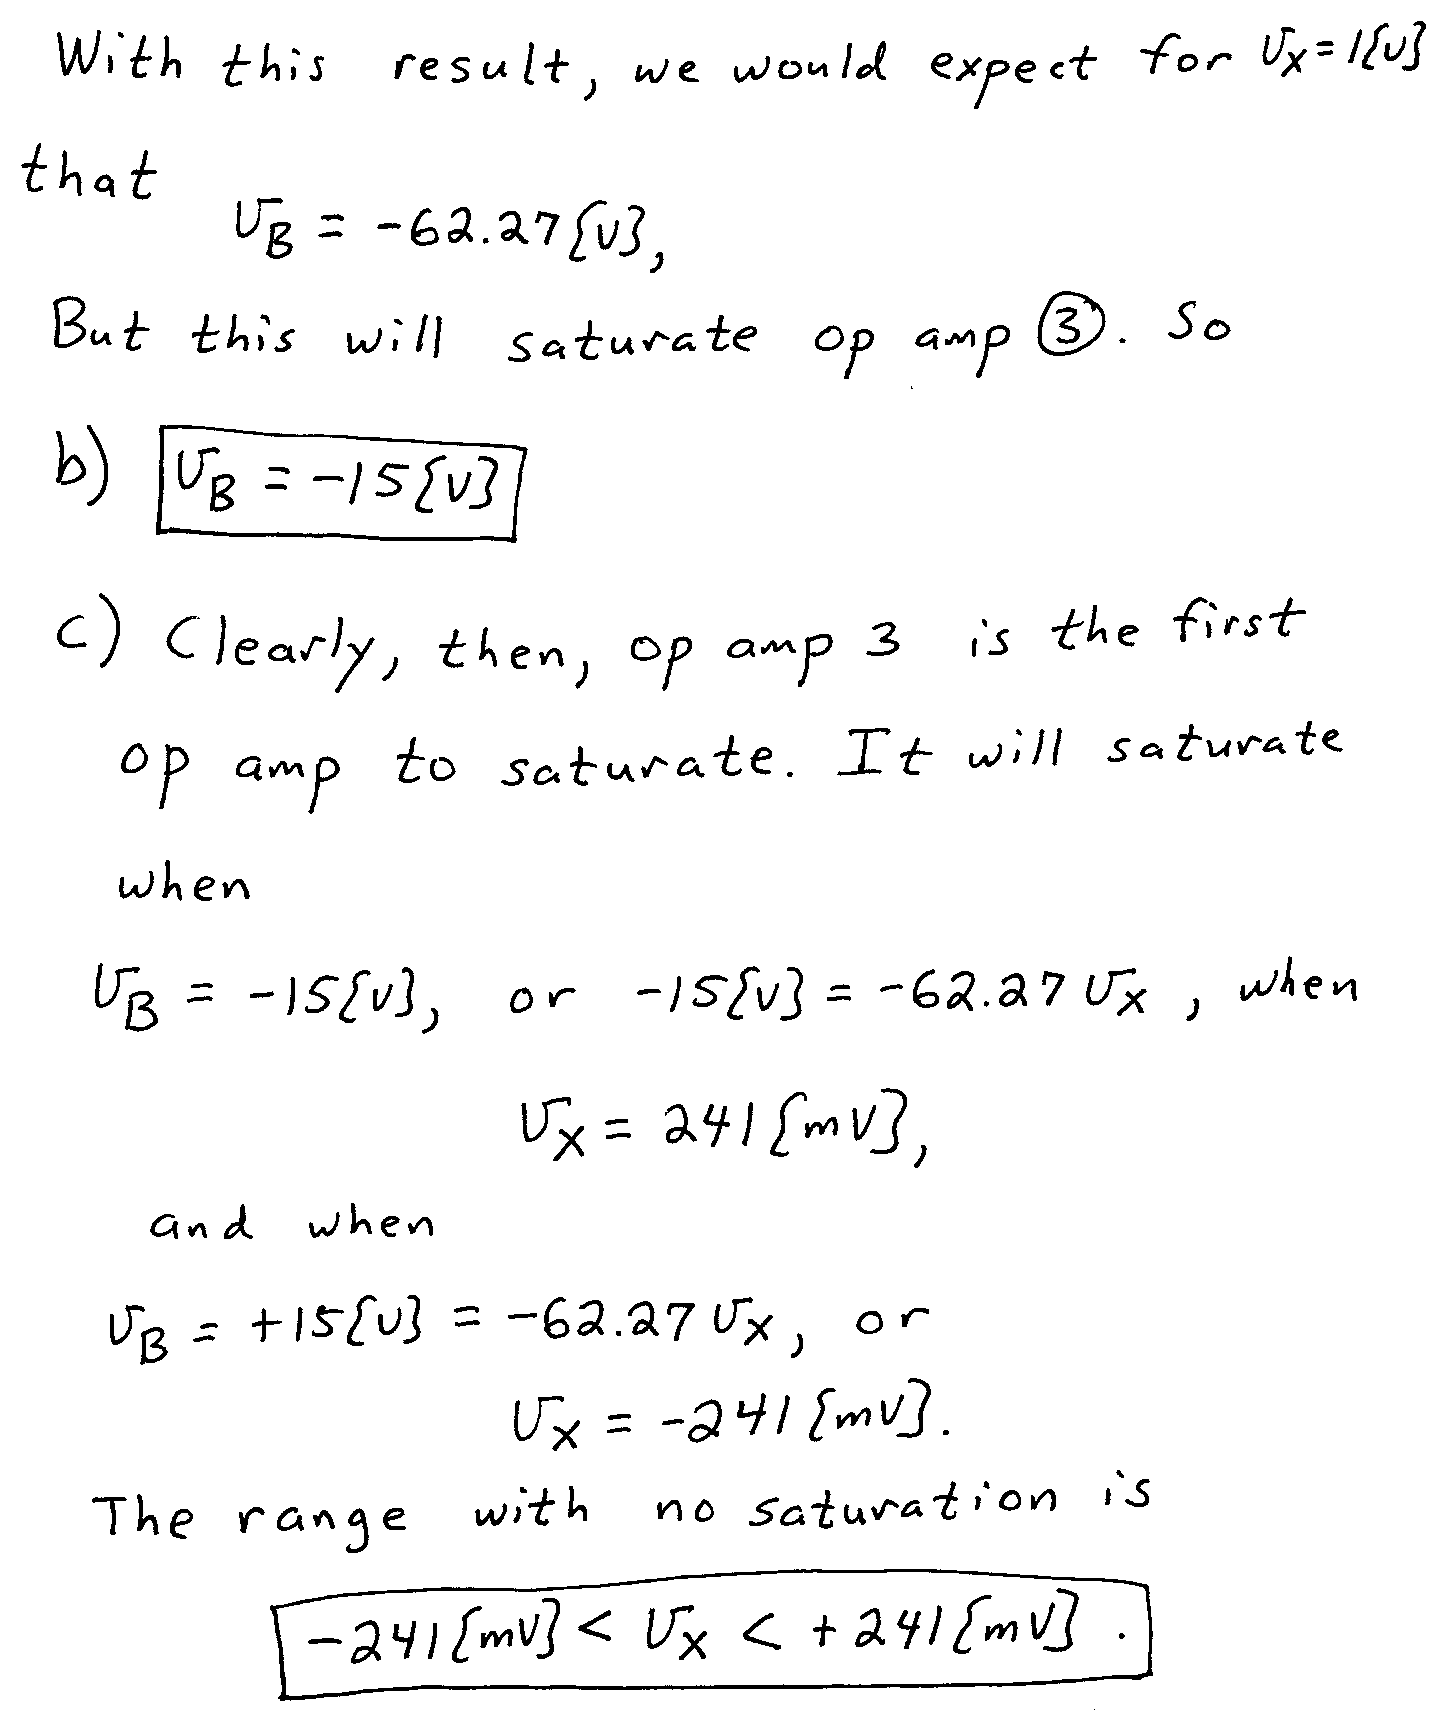 With this result, we would expect for vX = 1{V}
that
vB = -62.27{V},
But this will saturate op amp ③. So
b) vB = -15{V}
c) Clearly, then, op amp 3 is the first
op amp to saturate. It will saturate
when
vB = -15{V}, or -15{V} = -62.27 vX, when
vX = 241{mV},
and when
vB = +15{V} = -62.27 vX, or
vX = -241{mV}.
The range with no saturation is
-241{mV} < vX < +241{mV}.